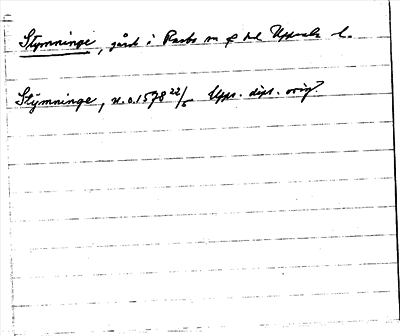 Stymninge, gård i Rasbo sn o hd Uppsala l.
Stymninge, n.o. 1578 22/5 Upps. dipl. orig.